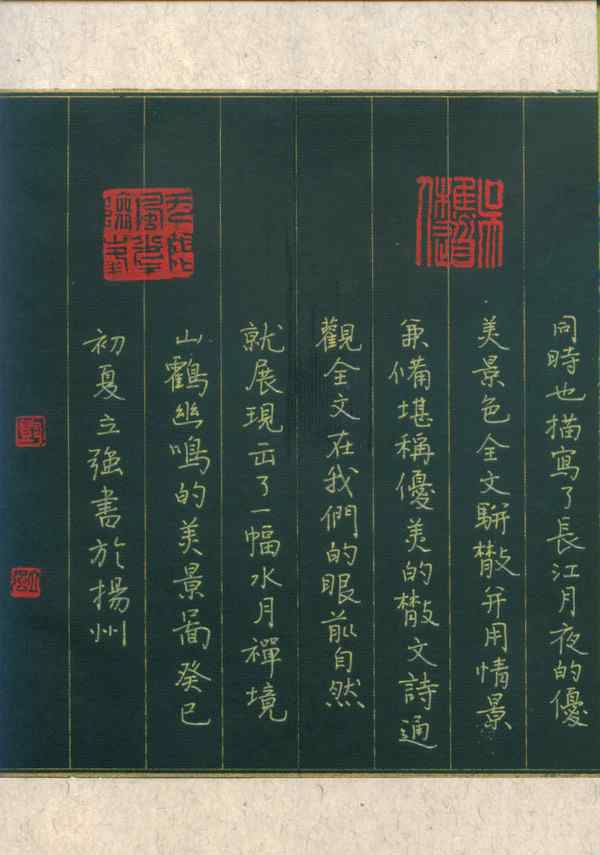 同時也描寫了長江月夜的優
美景色全文駢散并用情景
兼備堪稱優美的散文詩通
觀全文在我們的眼前自然
就展現出了一幅水月禪境
山鶴幽鳴的美景圖癸巳
初夏立強書於揚州